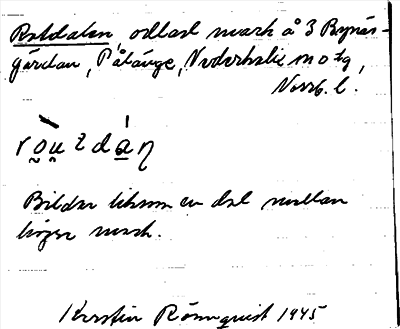 Rotdalen, odlad mark å 3 Bynäs-
gärdan, Pålänge, Nederkalix
Norrb. l.
Bildar liksom en dal mellan
högre mark.
Kerstin Rönnquist 1945